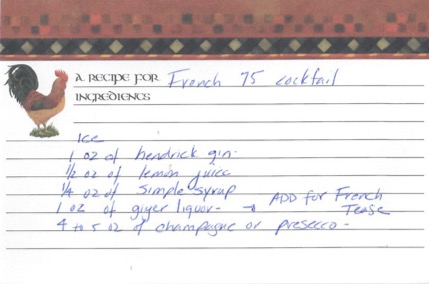 A RECIPE FOR French 75 cocktail
INGREDIENTS
Ice
1 oz of hendrick gin.
1/2 oz of lemon juice
1/4 oz of simple syrup
1 oz of giyer liquor - → ADD for French Tease
4 to 5 oz of champagne or presecco -